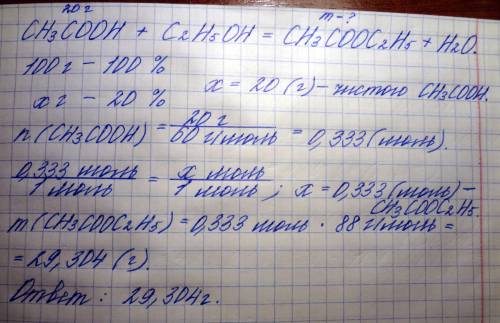 20 г m-?
CH3COOH + C2H5OH = CH3COOC2H5 + H2O.
100 г - 100 %
x г - 20 % x = 20 (г) - чистого CH3COOH.
n (CH3COOH) = 20 г / 60 г/моль = 0,333 (моль).
0,333 моль / 1 моль = x моль / 1 моль ; x = 0,333 (моль) -
CH3COOC2H5.
m (CH3COOC2H5) = 0,333 моль · 88 г/моль =
= 29,304 (г).
Ответ: 29,304 г.